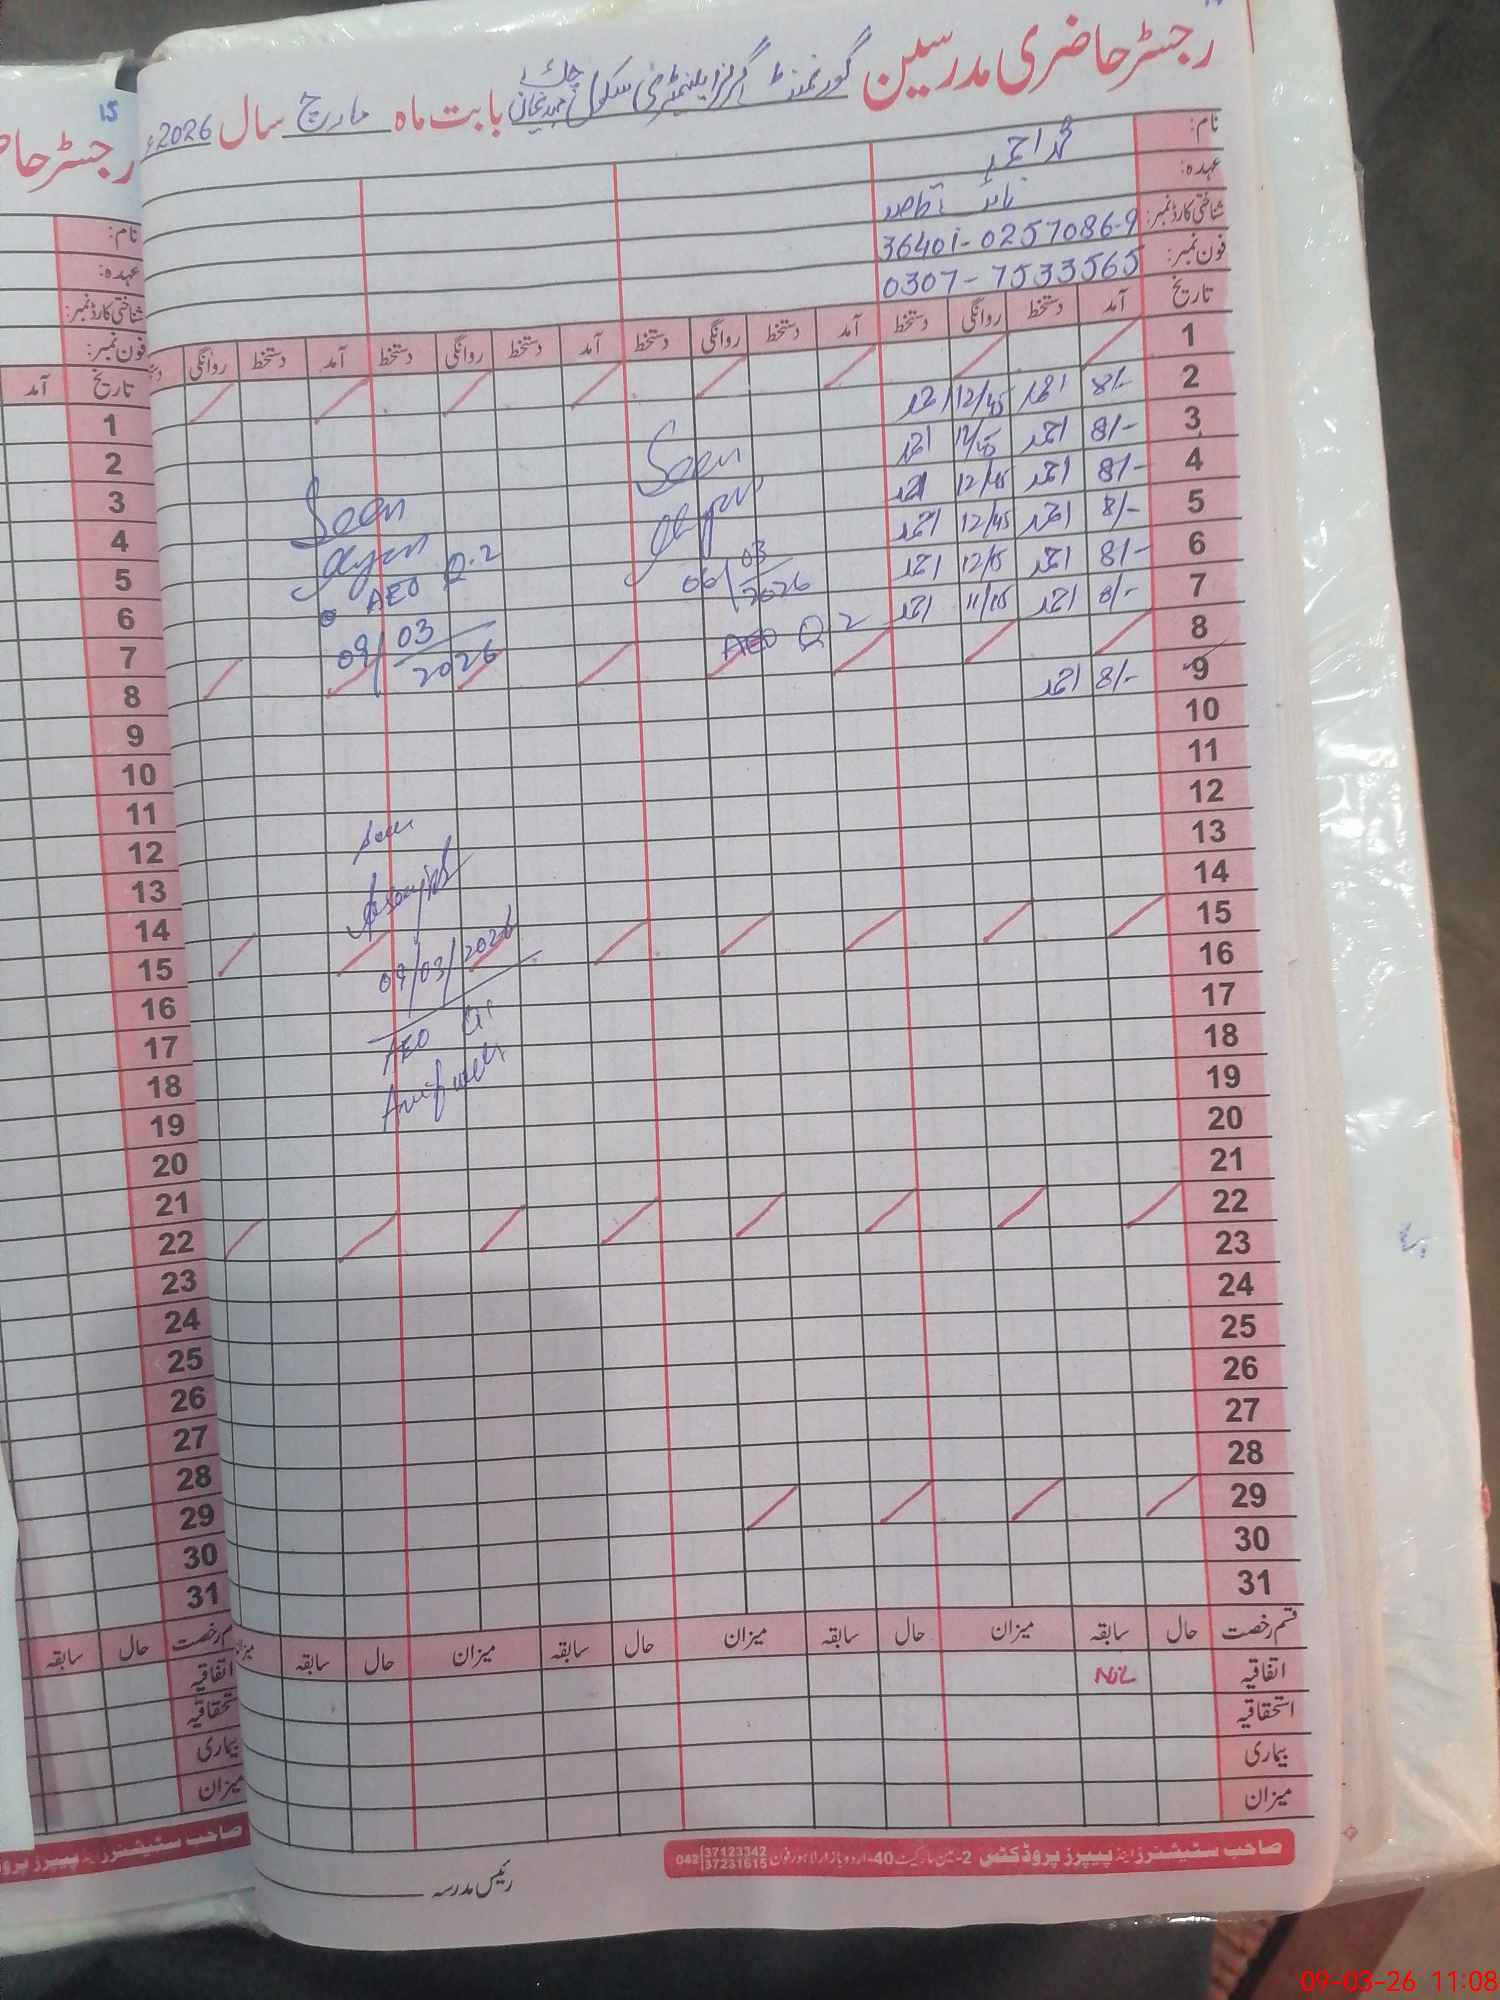 رجسٹر حاضری مدرسین گورنمنٹ گرلز ایلیمنٹری سکول چک بابت ماہ مارچ سال 2026ء
نام: محمد احمد
عہدہ: نائب قاصد
شناختی کارڈ نمبر: 36401-0257086-9
فون نمبر: 0307-7533565
تاریخ آمد دستخط روانگی دستخط آمد دستخط روانگی دستخط آمد دستخط روانگی دستخط آمد دستخط روانگی
1
2 8/- احمد 12/45 احمد
3 8/- احمد 12/45 احمد
4 8/- احمد 12/45 احمد
5 8/- احمد 12/45 احمد
6 8/- احمد 12/15 احمد
7 8/- احمد 11/15 احمد
8
9 8/- احمد
10
11
12
13
14
15
16
17
18
19
20
21
22
23
24
25
26
27
28
29
30
31
Seen
06/03/2026
AEO Q 2
Seen
AEO Q.2
09/03/2026
Seen
09/03/2026
AEO
قسم رخصت حال سابقہ میزان حال سابقہ میزان حال سابقہ میزان حال سابقہ
اتفاقیہ NIL
استحقاقیہ
بیماری
میزان
صاحب سٹیشنرز اینڈ پیپرز پروڈکٹس 2-مین مارکیٹ 40-اردو بازار لاہور فون 042 37123342 37231615
رئیس مدرسہ
15
رجسٹر
نام:
عہدہ:
شناختی کارڈ نمبر:
فون نمبر:
تاریخ آمد
1
2
3
4
5
6
7
8
9
10
11
12
13
14
15
16
17
18
19
20
21
22
23
24
25
26
27
28
29
30
31
رخصت حال سابقہ
اتفاقیہ
بیماری
میزان
صاحب سٹیشنرز اینڈ پیپرز
09-03-26 11:08